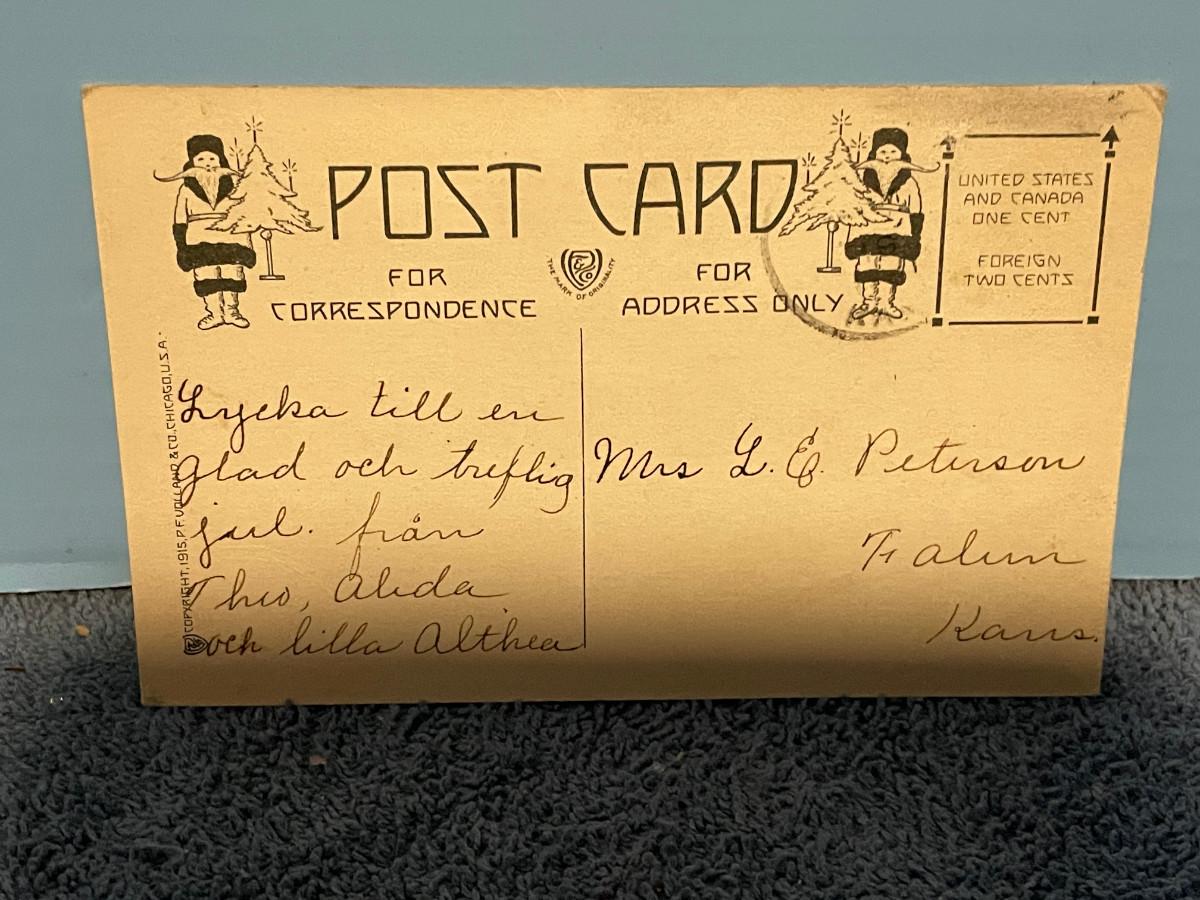 POST CARD
FOR
CORRESPONDENCE
THE MARK OF ORIGINALITY
FOR
ADDRESS ONLY
UNITED STATES
AND CANADA
ONE CENT
FOREIGN
TWO CENTS
COPYRIGHT, 1915, P.F. VOLLAND & CO., CHICAGO, U.S.A.
Lycka till en
glad och treflig
jul. från
Theo, Alida
och lilla Althea
Mrs L. E. Peterson
Falun
Kans.